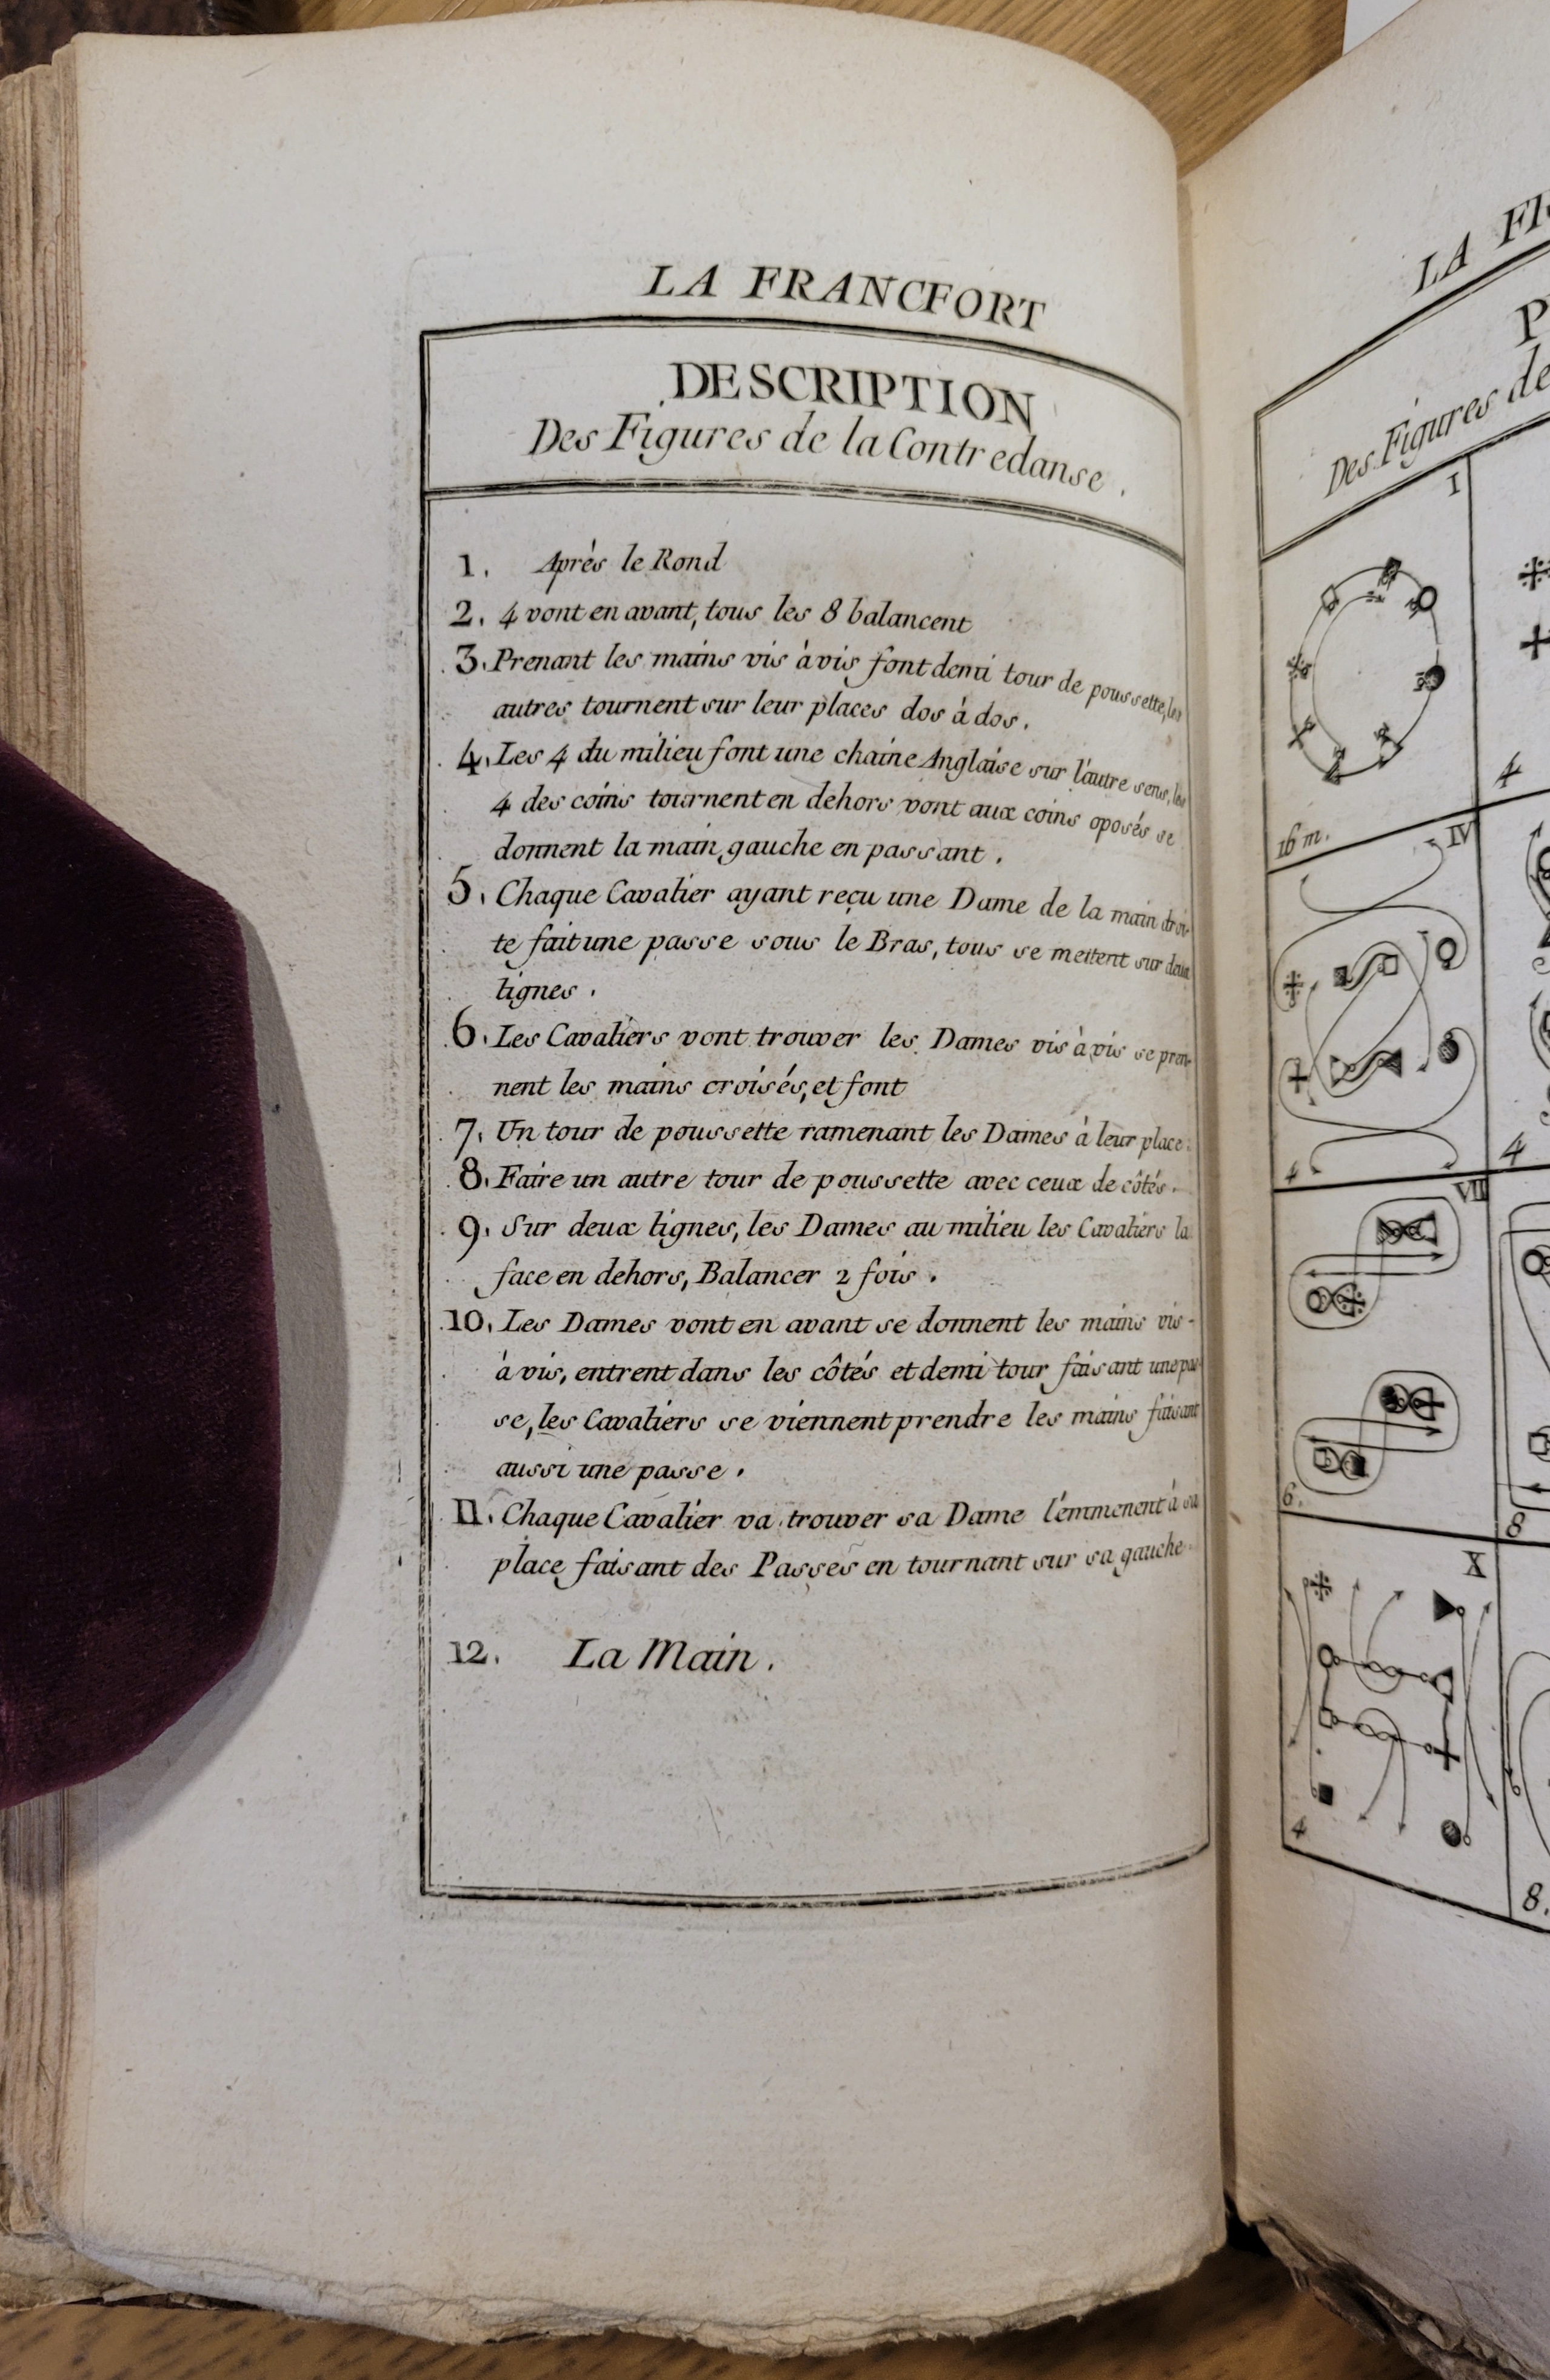 LA FRANCFORT
DESCRIPTION
Des Figures de la Contredanse.
1. Après le Rond
2. 4 vont en avant, tous les 8 balancent
3. Prenant les mains vis à vis font demi tour de poussette, les
autres tournent sur leur places dos à dos.
4. Les 4 du milieu font une chaine Anglaise sur l'autre sens, les
4 des coins tournent en dehors vont aux coins oposés se
donnent la main gauche en passant.
5. Chaque Cavalier ayant reçu une Dame de la main droi-
te fait une passe sous le Bras, tous se mettent sur deux
lignes.
6. Les Cavaliers vont trouver les Dames vis à vis se pren-
nent les mains croisés, et font
7. Un tour de poussette ramenant les Dames à leur place.
8. Faire un autre tour de poussette avec ceux de côtés.
9. Sur deux lignes, les Dames au milieu les Cavaliers la
face en dehors, Balancer 2 fois.
10. Les Dames vont en avant se donnent les mains vis-
à vis, entrent dans les côtés et demi tour faisant une pas-
se, les Cavaliers se viennent prendre les mains faisant
aussi une passe.
11. Chaque Cavalier va trouver sa Dame l'emmenent à sa
place faisant des Passes en tournant sur sa gauche.
12. La Main.
LA FR
P
Des Figures de
I
16 m.
4
IV
4
4
VII
6.
8
X
4
8.